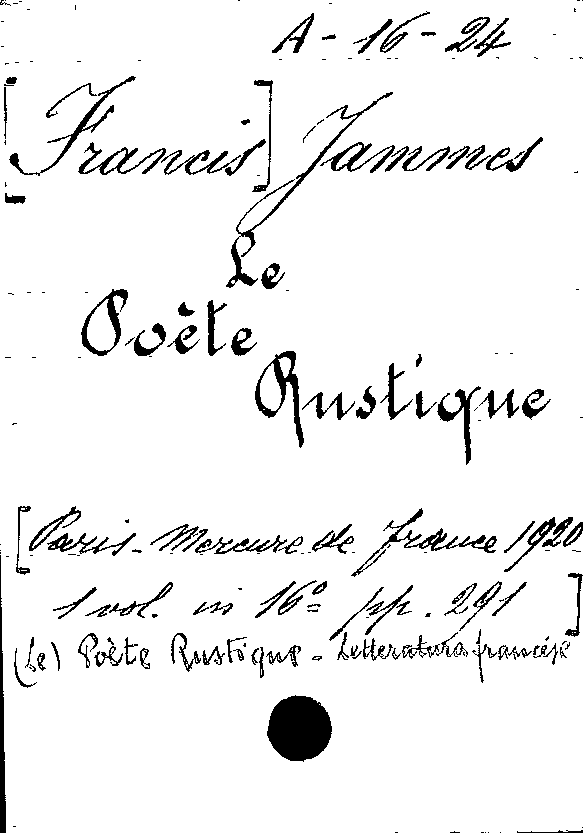 A - 16 - 24
[Francis] Jammes
Le
Poète
Rustique
[Paris - Mercure de France 1920
1 vol. in 16º pp. 291]
(Le) Poète Rustique - Letteratura francése